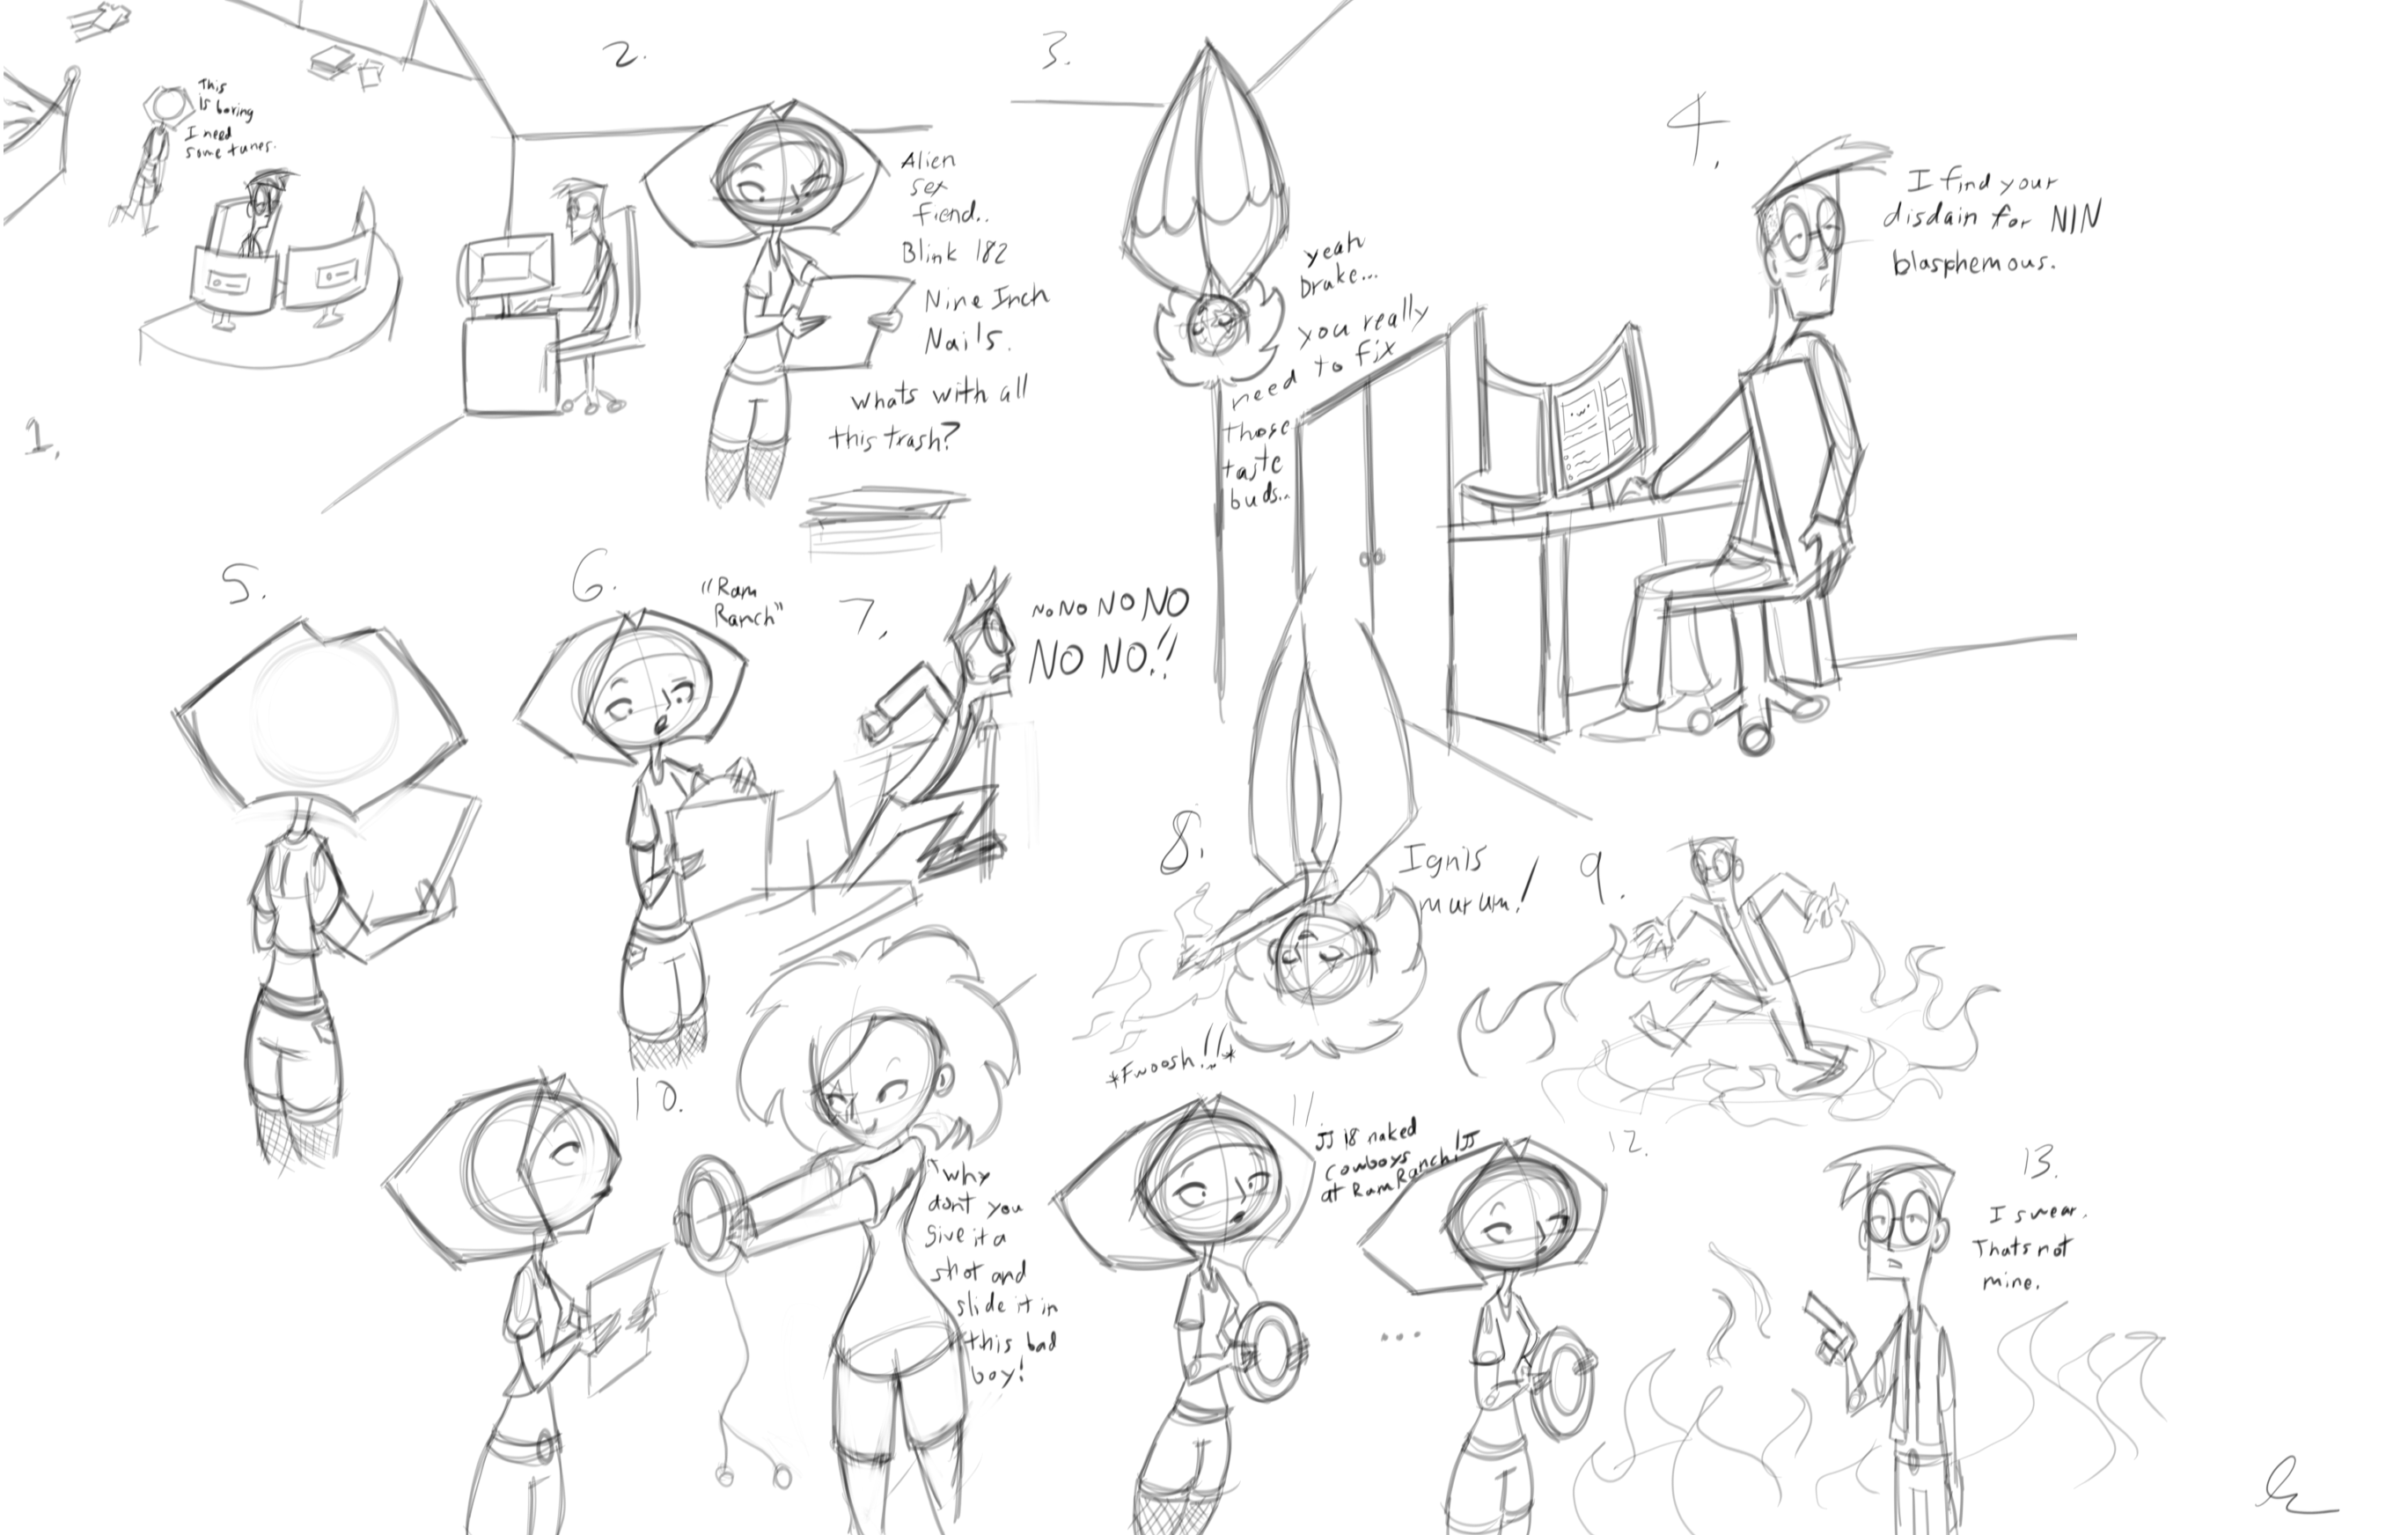 1.
This
is boring
I need
some tunes.
2.
Alien
sex
fiend..
Blink 182
Nine Inch
Nails.
whats with all
this trash?
3.
yeah
brake...
you really
need to fix
those
taste
buds..
4.
I find your
disdain for NIN
blasphemous.
5.
6.
"Ram
Ranch"
7.
No No NO NO
NO NO!!
8.
Ignis
murum!
*Fwoosh!!*
9.
10.
why
dont you
give it a
shot and
slide it in
this bad
boy!
11
♫ 18 naked
cowboys
at Ram Ranch! ♫
...
12.
13.
I swear.
Thats not
mine.